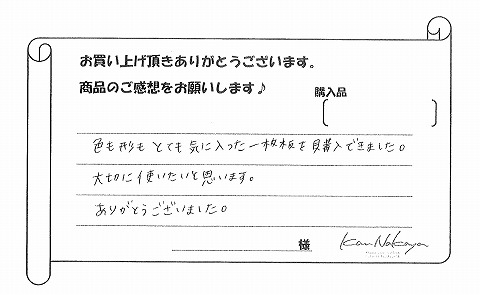 お買い上げ頂きありがとうございます。
商品のご感想をお願いします♪
購入品
色も形もとても気に入った一枚板を購入できました。
大切に使いたいと思います。
ありがとうございました。
様